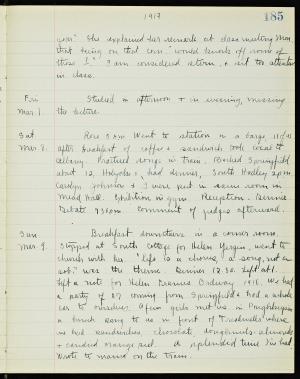 1917
185
year." She explained her remark at class meeting Mon.
that being on that com. "would knock off some of
those I" I am considered stern, & not too attentive
in class.
Fri
Mar.
Studied in afternoon & in evening, missing
the lecture.
Sat
Mar.
Rose 5 A.M. Went to station in a barge
after breakfast of coffee & sandwich took
Albany. Practised songs in train. Reached Springfield
about 12, Holyoke, had dinner, South Hadley 2 P.M.
Carolyn Johnson & I were put in same room in
Mead Hall. Exhibition in gym. Reception. Dinner.
Debate 7:30 P.M. Comment of judges afterward.
Sun
Mar. 4.
Breakfast downstairs in a corner room.
Stopped at South Cottage for Helen went to
church with her. "Life is a chorus, a song, not a
solo." was the theme. Dinner 12.30. Left at 1.
Left a note for Helen Frances Ordway 1918. We had
a party of 87 coming from Springfield & had a whole
car to ourselves. A few girls met us in Poughkeepsie
a truck song to us in front of where
we had sandwiches, chocolate, doughnuts, almonds
& candied orange peel. A splendid time I've had.
Wrote to mama on the train.